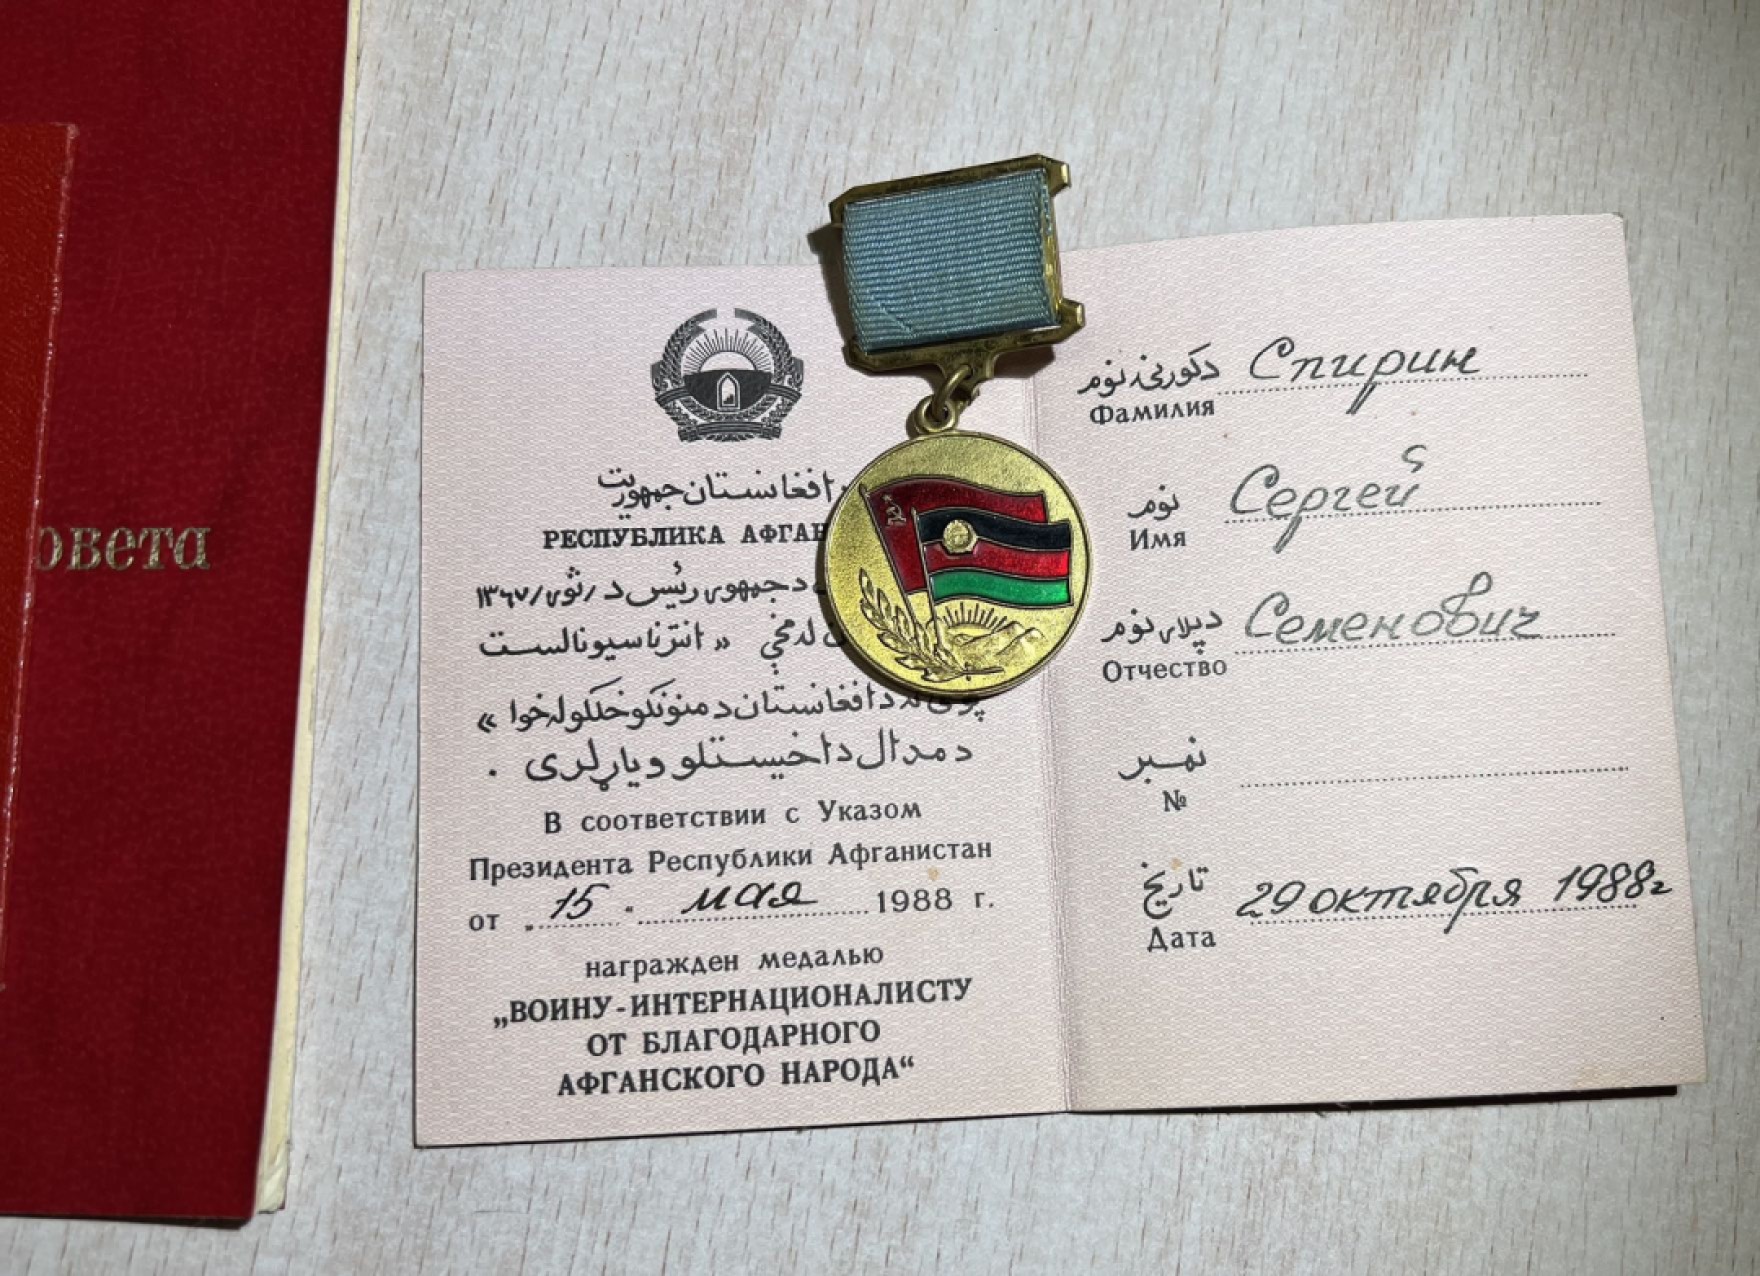 овета
افغانستان جمهوریت
РЕСПУБЛИКА АФГАН
د جمهوری رئیس د /ثور/ ۱۳٦٧
له مخې « انترناسیونالست
د افغانستان د منونکو خلکو له خوا »
د مدال د اخیستلو ویاړ لری .
В соответствии с Указом
Президента Республики Афганистан
от „15“ мая 1988 г.
награжден медалью
„ВОИНУ-ИНТЕРНАЦИОНАЛИСТУ
ОТ БЛАГОДАРНОГО
АФГАНСКОГО НАРОДА“
د کورنۍ نوم Спирин
Фамилия
نوم Сергей
Имя
د پلار نوم Семенович
Отчество
نمبر
№
تاریخ 29 октября 1988г
Дата